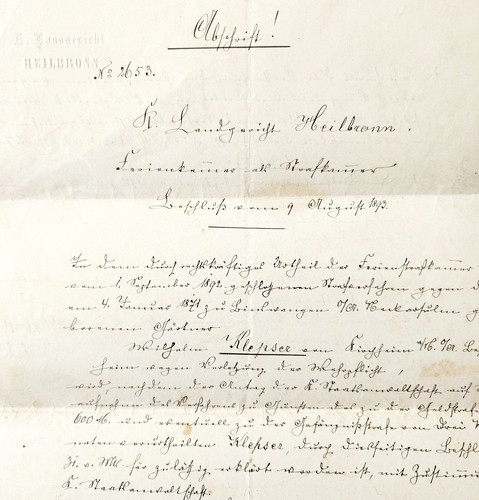 Abschrift!
K. Landgericht
HEILBRONN
No 2653.
K. Landgericht Heilbronn.
Ferienkammer als Strafkammer
Beschluß vom 9 August 1893.
In dem durch rechtskräftiges Urtheil der Ferienstrafkammer
vom 1. September 1892 geschlossenen Strafverfahren gegen d
am 4. Januar 1871 zu Binswangen O/A. Neckarsulm ge
borenen Gärtner
Wilhelm Klepser von Kirchheim a/N. O/A. Bes
heim wegen Verletzung der Wehrpflicht,
wird, nachdem der Antrag der K. Staatsanwaltschaft auf
des Verfahrens zu Gunsten des zu der Geldstrafe
600 M. und eventuell zu der Gefängnißstrafe von Drei
naten verurtheilten Klepser, durch diesseitigen Beschl
für zulässig erklärt worden ist, mit Zustimm
K. Staatsanwaltschaft